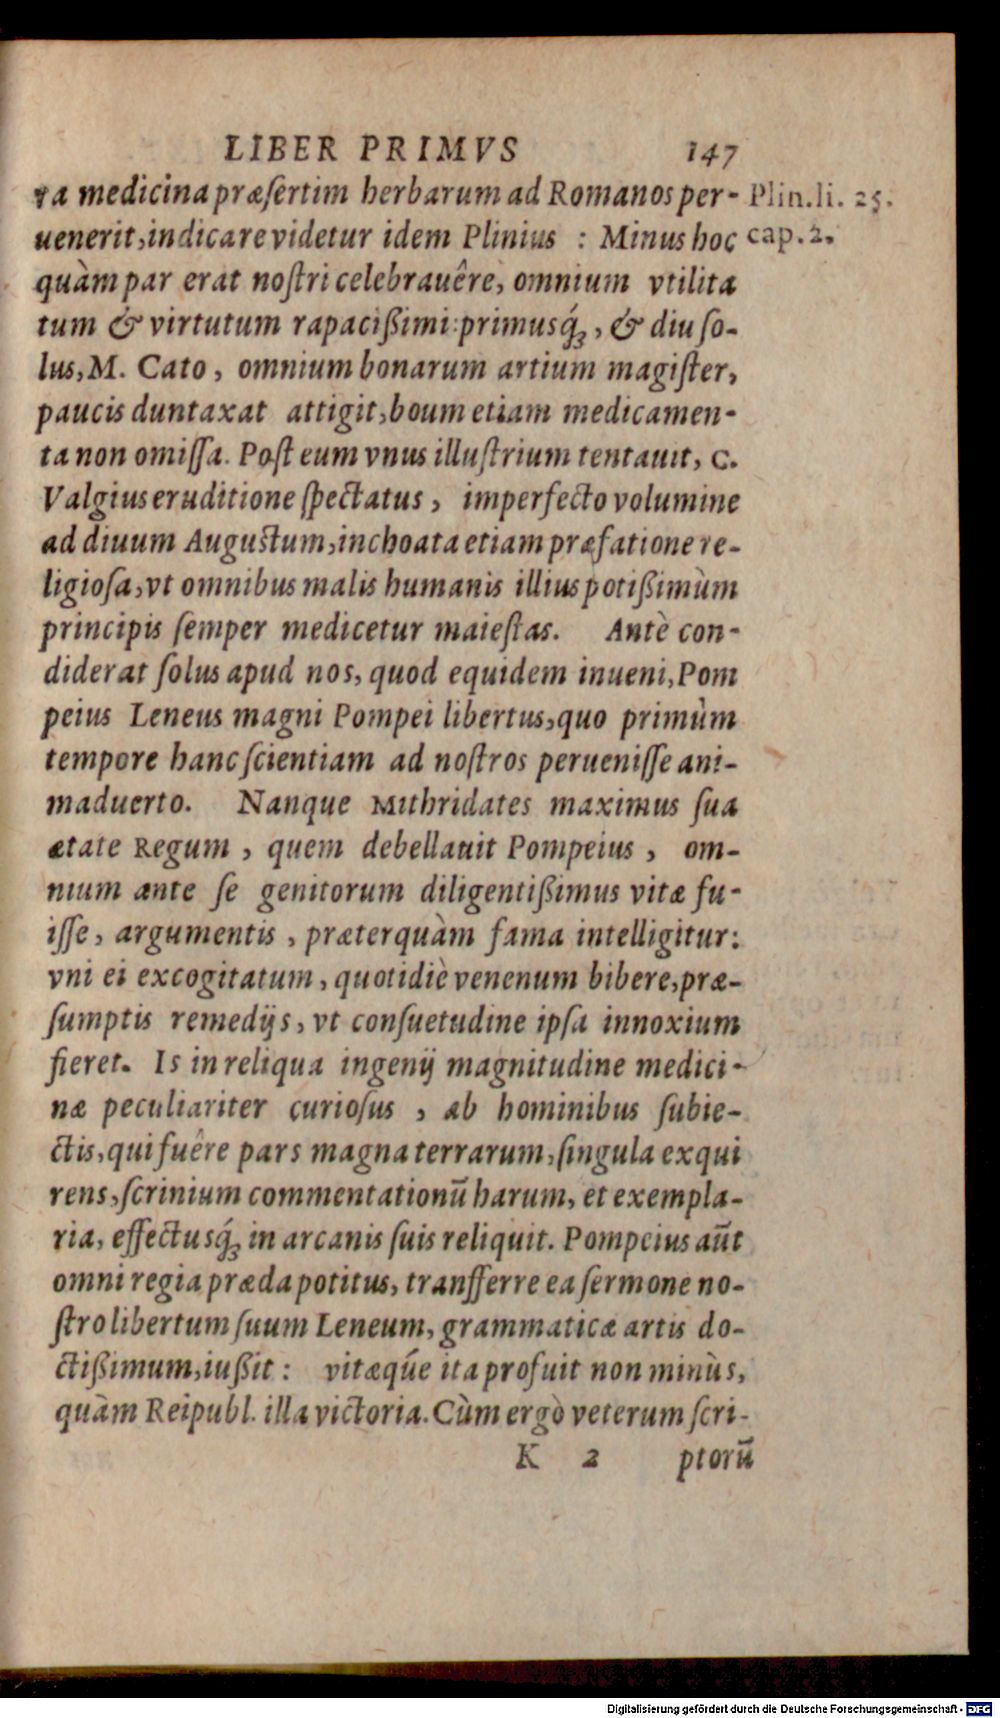 LIBER PRIMVS 147
ra medicina præſertim herbarum ad Romanos per- Plin.li. 25.
uenerit, indicare videtur idem Plinius : Minus hoc cap.2.
quàm par erat noſtri celebrauêre, omnium vtilita
tum & virtutum rapacißimi: primusq́ꝫ, & diu ſo-
lus, M. Cato, omnium bonarum artium magiſter,
paucis duntaxat attigit, boum etiam medicamen-
ta non omiſſa. Poſt eum vnus illuſtrium tentauit, C.
Valgius eruditione ſpectatus, imperfecto volumine
ad diuum Auguſtum, inchoata etiam præfatione re-
ligioſa, vt omnibus malis humanis illius potißimùm
principis ſemper medicetur maieſtas. Antè con-
diderat ſolus apud nos, quod equidem inueni, Pom
peius Leneus magni Pompei libertus, quo primùm
tempore hanc ſcientiam ad noſtros perueniſſe ani-
maduerto. Nanque Mithridates maximus ſua
ætate Regum, quem debellauit Pompeius, om-
nium ante ſe genitorum diligentißimus vitæ fu-
iſſe, argumentis, præterquàm fama intelligitur:
vni ei excogitatum, quotidiè venenum bibere, præ-
ſumptis remedijs, vt conſuetudine ipſa innoxium
fieret. Is in reliqua ingenij magnitudine medici-
næ peculiariter curioſus, ab hominibus ſubie-
ctis, qui fuêre pars magna terrarum, ſingula exqui
rens, ſcrinium commentationũ harum, et exempla-
ria, effectusq́ꝫ in arcanis ſuis reliquit. Pompeius aũt
omni regia præda potitus, tranſferre ea ſermone no-
ſtro libertum ſuum Leneum, grammaticæ artis do-
ctißimum, iußit : vitæq́ue ita profuit non minùs,
quàm Reipubl. illa victoria. Cùm ergò veterum ſcri-
K 2 ptorũ
Digitalisierung gefördert durch die Deutsche Forschungsgemeinschaft - DFG